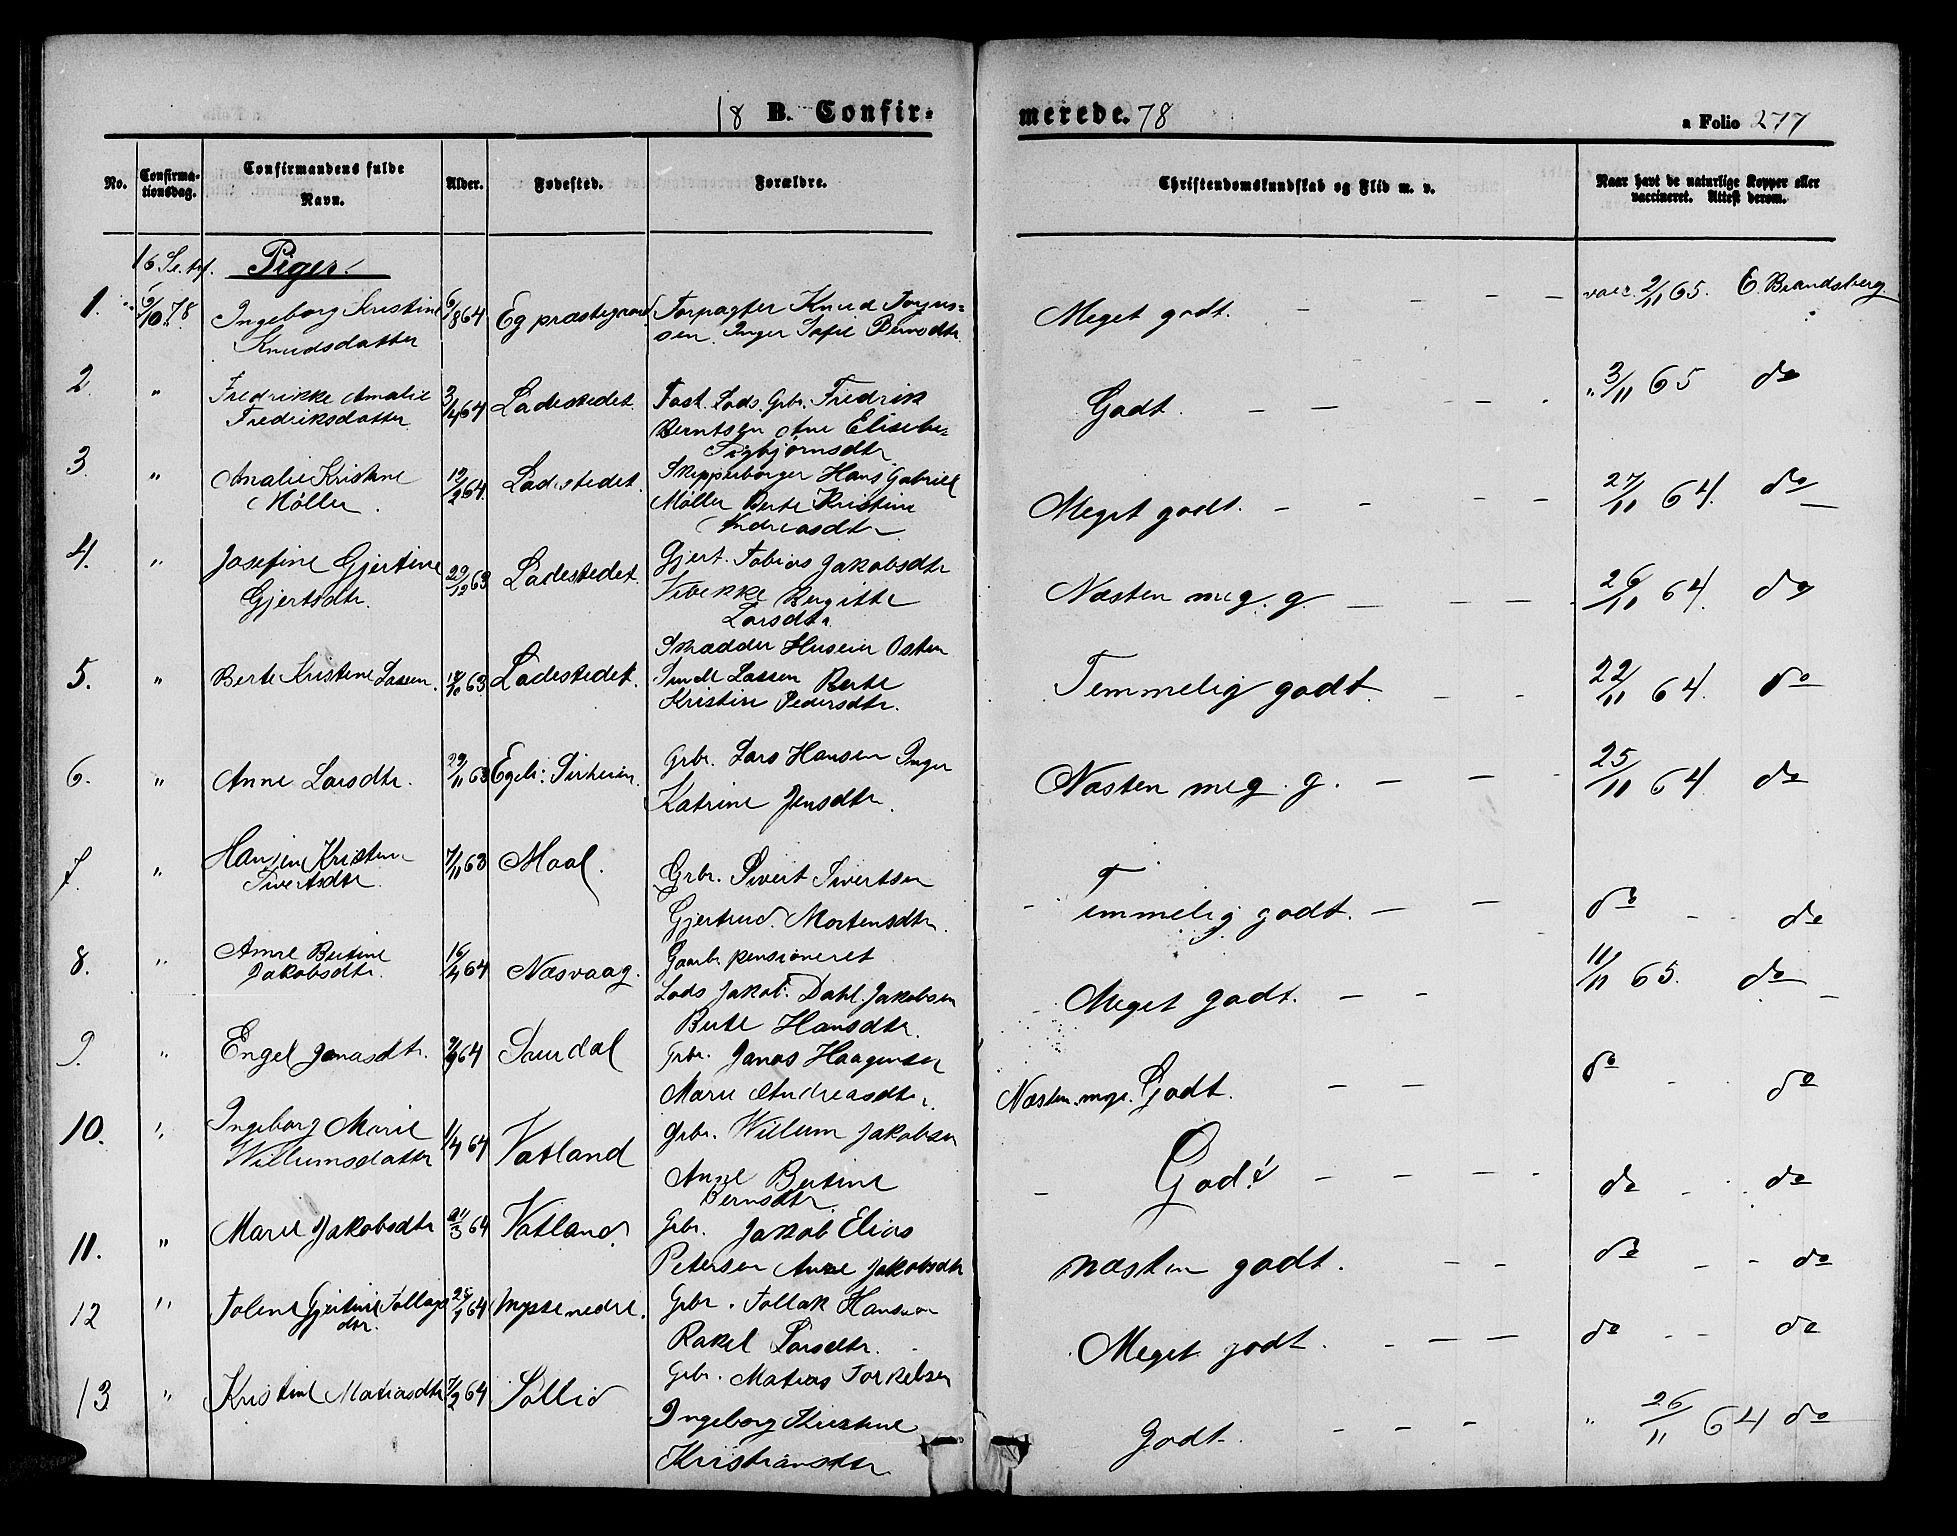 18 B. Confirmerede. 78
a Folio 277
No.
Confirmationsdag.
Confirmandens fulde Navn.
Alder.
Fødested.
Forældre.
Christendomskundskab og Flid m. v.
Naar havt de naturlige Kopper eller vaccineret. Attest derom.
Piger.
1. 6/10 78 Ingeborg Kristine 6/8 64 Eg præstegrend Forpagter Knud
Knudsdatter Inger Sofie Berndtr
Meget godt. — — — vacc. 2/11 65. E. Brandsberg.
2. " Fredrikke Amalie 3/4 64 Ladestedet Fast. Lods Grbr. Fredrik
Fredriksdatter Berntsen Ane
Sigbjørnsdtr
Godt. — — — " 3/11 65 do
3. " Amalie Kristine 64 Ladestedet. Skipperborger Hans Gabriel
Møller. Møller Berte Kristine
Andreasdtr
Meget godt. — — — — 27/11 64. do
4. " Josefine Gjertine 29/12 63 Ladestedet. Gjert Tobias
Gjertsdtr. Vibekke Bergitte
Larsdtr
Næsten meg. g. — — — 26/11 64. do
5. " Berte Kristine Lassen. 63 Ladestedet. Skrædder Huseier Osten
Lassen Berte
Kristin Pedersdtr.
Temmelig godt. — — 22/11 64. do
6. " Anne Larsdtr. 29/11 63 Grbr. Lars Hansen Inger
Katrine Jensdtr.
Næsten meg. g. — — 25/11 64 do
7. " Kristine 7/11 63 Moal. Grbr. Sivert Sivertsen
Sivertsdtr. Gjertrud Mortensdtr.
Temmelig godt. — — do — do
8. " Anne Bertine 16/4 64 Næsvaag. Gaarbr. pensioneret
Jakobsdtr. Lods Jakob Dahl Jakobsen
Berte Hansdtr.
Meget godt. — — 11/11 65. do
9. " Engel Jonasdtr. 64 Grbr. Jonas Haagensen
Marie Andreasdtr.
Næsten meg. Godt. — — do — do
10. " Ingeborg Marie 1/4 64 Vatland Grbr. Willum Jakobsen
Willumsdatter Bertine
Berndtr.
Godt — — — — do — do
11. " Marie Jakobsdtr 64 Vatland. Grbr. Jakob Elias
Petersen Anne Jakobsdtr
næsten godt. — — do — do
12 " Tolene Gjertine Tollags 64 nedre. Grbr. Tollak Hansen
dtr. Rakel Larsdtr.
Meget godt. — — do — do
13 " Kristine Matiasdtr 7/2 64 Sollid Grbr. Matias Torkelsen
Ingeborg Kirstine
Kristiansdtr
Godt. — — — " 26/11 64 do